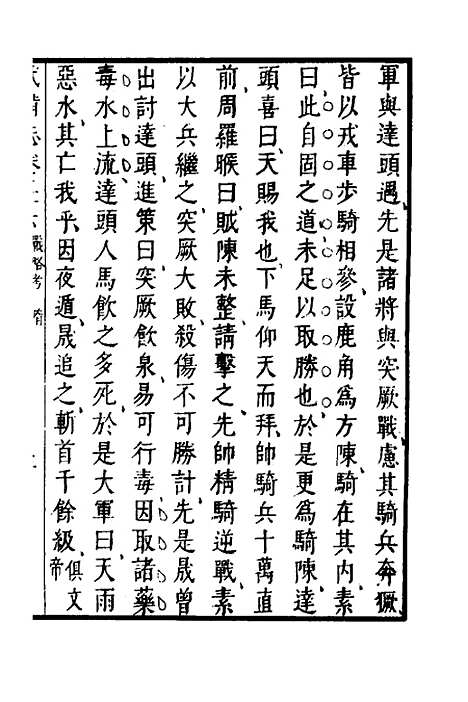 軍與達頭遇先是諸將與突厥戰慮其騎兵奔獗
皆以戎車步騎相參設鹿角爲方陳騎在其內素
曰此自固之道未足以取勝也於是更爲騎陳達
頭喜曰天賜我也下馬仰天而拜帥騎兵十萬直
前周羅睺曰賊陳未整請擊之先帥精騎逆戰素
以大兵繼之突厥大敗殺傷不可勝計先是晟曾
出討達頭進策曰突厥飲泉易可行毒因取諸藥
毒水上流達頭人馬飲之多死於是大軍曰天雨
惡水其亡我乎因夜遁晟追之斬首千餘級俱文帝
武備志卷 戰略考 隋